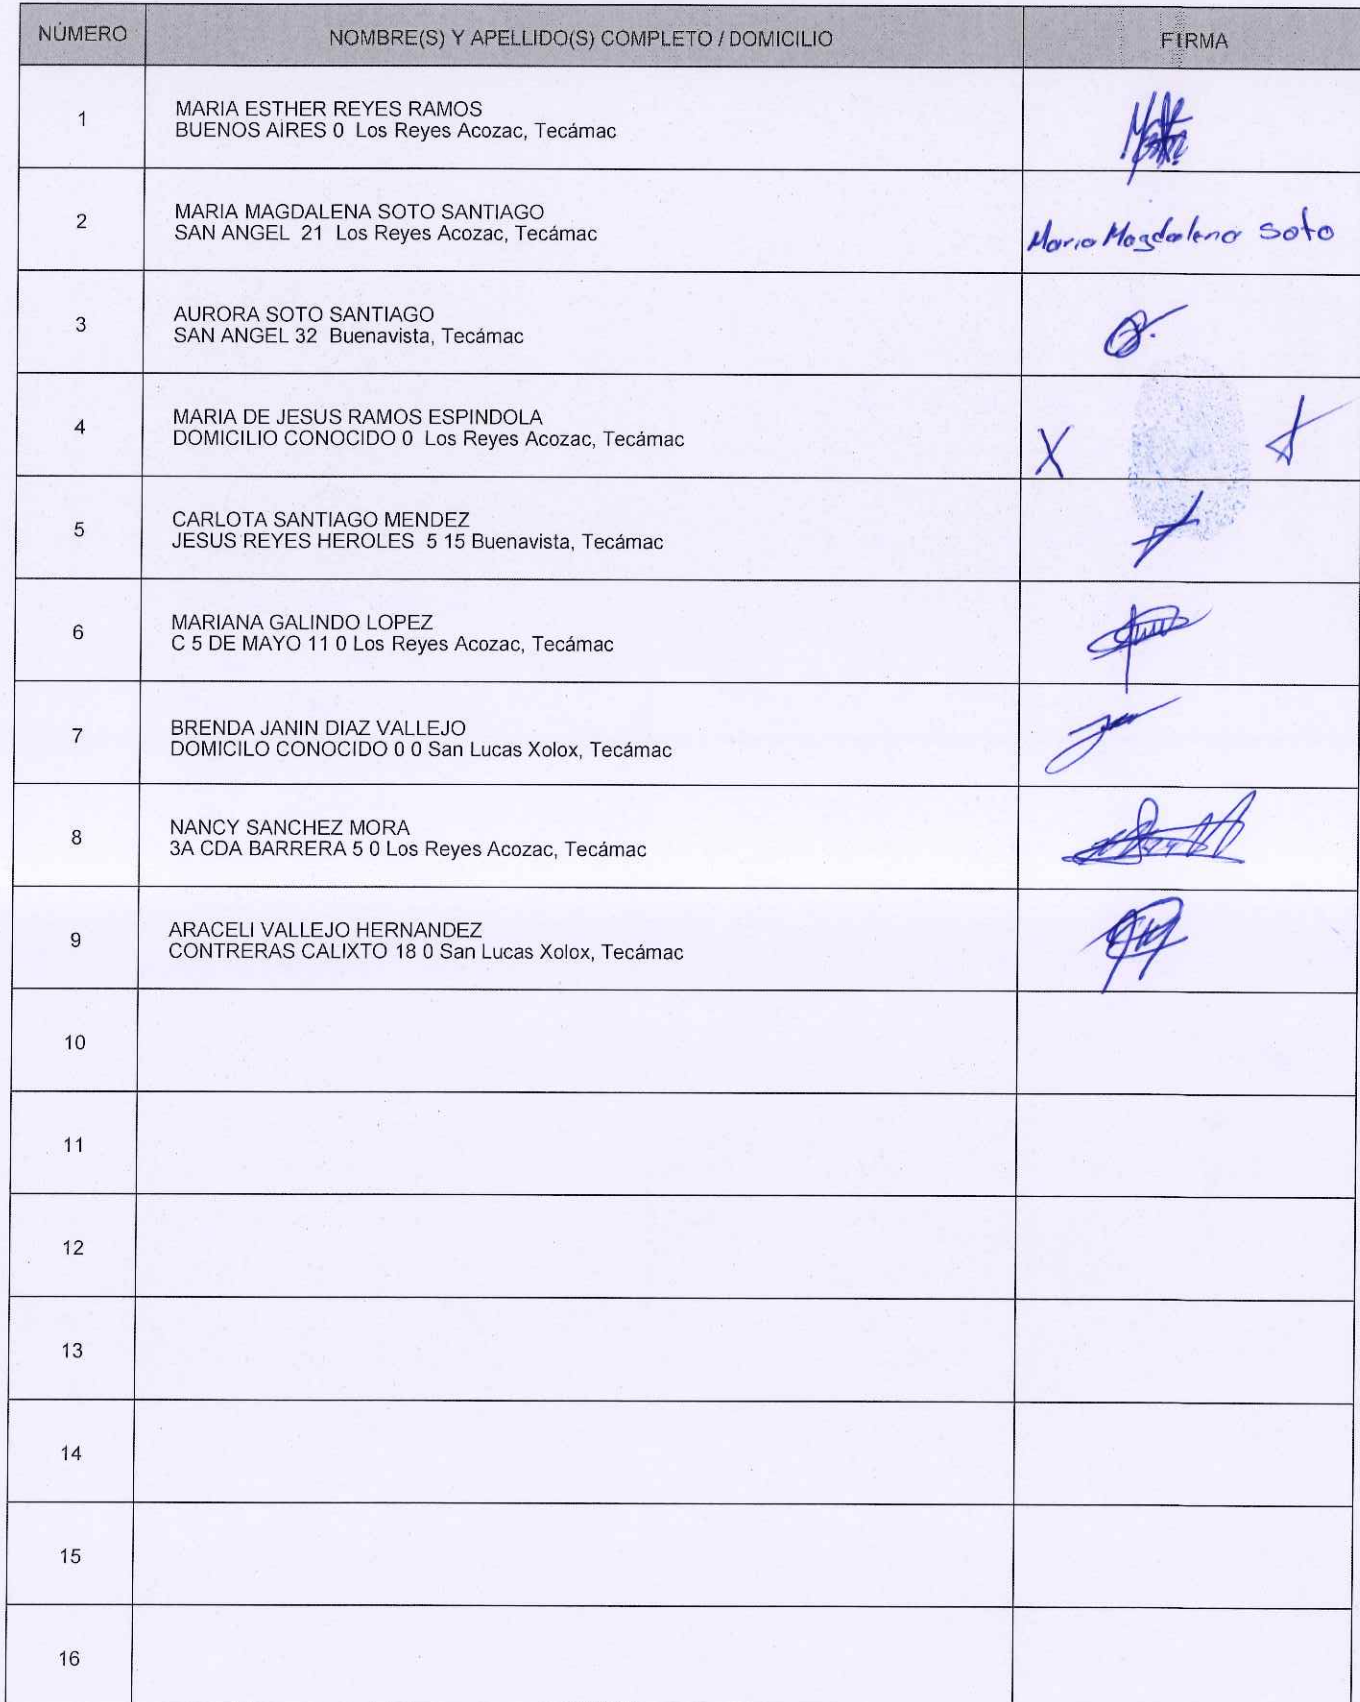 NÚMERO NOMBRE(S) Y APELLIDO(S) COMPLETO / DOMICILIO FIRMA
1 MARIA ESTHER REYES RAMOS
BUENOS AIRES 0 Los Reyes Acozac, Tecámac
2 MARIA MAGDALENA SOTO SANTIAGO
SAN ANGEL 21 Los Reyes Acozac, Tecámac
Maria Magdalena Soto
3 AURORA SOTO SANTIAGO
SAN ANGEL 32 Buenavista, Tecámac
4 MARIA DE JESUS RAMOS ESPINDOLA
DOMICILIO CONOCIDO 0 Los Reyes Acozac, Tecámac
X
5 CARLOTA SANTIAGO MENDEZ
JESUS REYES HEROLES 5 15 Buenavista, Tecámac
6 MARIANA GALINDO LOPEZ
C 5 DE MAYO 11 0 Los Reyes Acozac, Tecámac
7 BRENDA JANIN DIAZ VALLEJO
DOMICILO CONOCIDO 0 0 San Lucas Xolox, Tecámac
8 NANCY SANCHEZ MORA
3A CDA BARRERA 5 0 Los Reyes Acozac, Tecámac
9 ARACELI VALLEJO HERNANDEZ
CONTRERAS CALIXTO 18 0 San Lucas Xolox, Tecámac
10
11
12
13
14
15
16